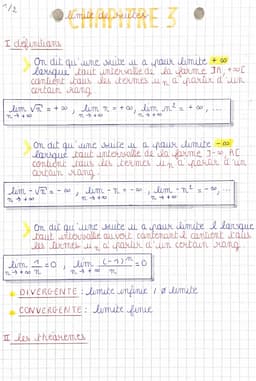 1/2
CHAPITRE 3
limite de suites
I définitions
On dit qu'une suite u a pour limite +∞
lorsque tout intervalle de la forme ]A, +∞[
contient tous les termes uₙ à partir d'un
certain rang
lim √n = +∞, lim n = +∞, lim n² = +∞, ...
n→+∞ n→+∞ n→+∞
On dit qu'une suite u a pour limite -∞
lorsque tout intervalle de la forme ]-∞, A[
contient tous les termes uₙ à partir d'un
certain rang.
lim -√n = -∞, lim -n = -∞, lim -n² = -∞, ...
n→+∞ n→+∞ n→+∞
On dit qu'une suite u a pour limite l lorsque
tout intervalle ouvert contenant l contient tous
les termes uₙ à partir d'un certain rang.
lim 1/n = 0, lim (-1)ⁿ/n = 0
n→+∞ n→+∞
DIVERGENTE : limite infinie / ∅ limite
CONVERGENTE : limite finie
II les théorèmes